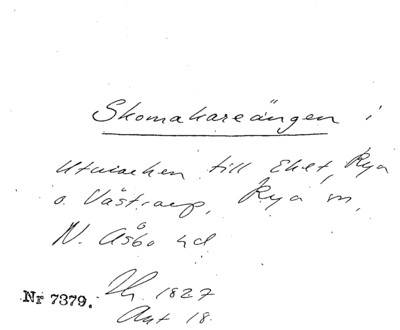 Skomakareängen i
Utmarken till Eket, Rya
o. Västraup, Rya sn,
N. Åsbo hd
Nr 7379. Lh. 1827
Akt 18.